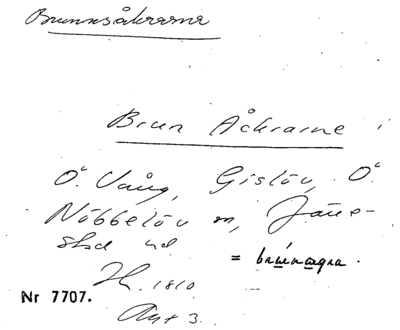 Brunnsåkrarna
Brun Åckrarne
Ö. Vång, Gislöv, Ö.
Nöbbelöv m, Järe-
stad
= brúnagra.
1810
Nr 7707.
Akt 3.